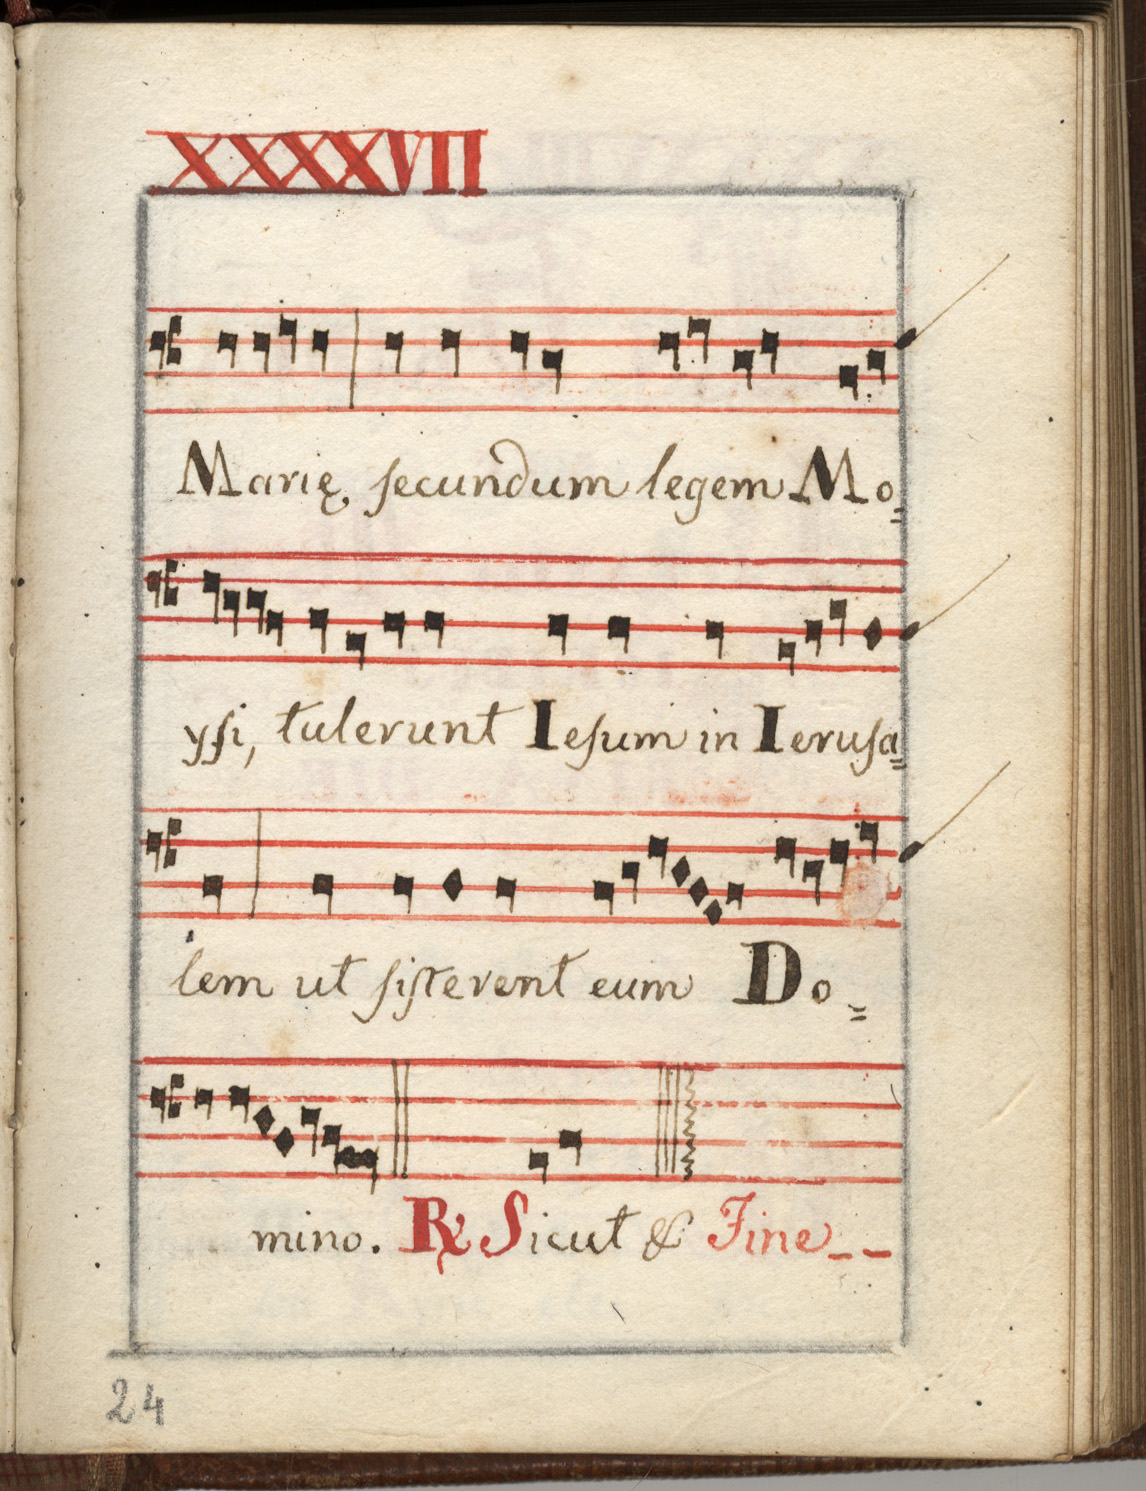 XXXXVII
Marię, ſecundum legem Mo=
yſi, tulerunt Ieſum in Ieruſa=
lem ut ſiſterent eum Do=
mino. ℟ Sicut & Fine--
24